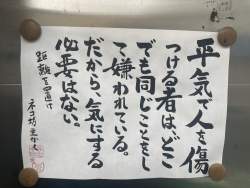 平気で人を傷
つける者は、どこ
でも同じことをし
て嫌われている。
だから、気にする
必要はない。
距離を置け